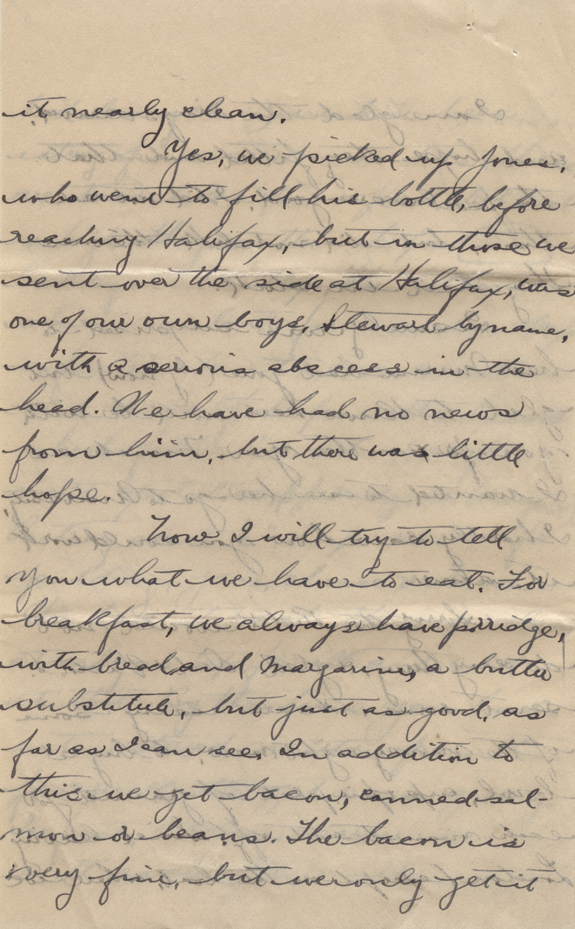 it nearly clean.
Yes, we picked up Jones,
who went to fill his bottle, before
reaching Halifax, but in those we
sent over the side at Halifax, was
one of our own boys, Stewart by name,
with a serious abscess in the
head. We have had no news
from him, but there was little
hope.
Now I will try to tell
you what we have to eat. For
breakfast, we always have porridge,
with bread and margarine, a butter
substitute, but just as good, as
far as I can see. In addition to
this we get bacon, canned sal-
mon or beans. The bacon is
very fine, but we only get it